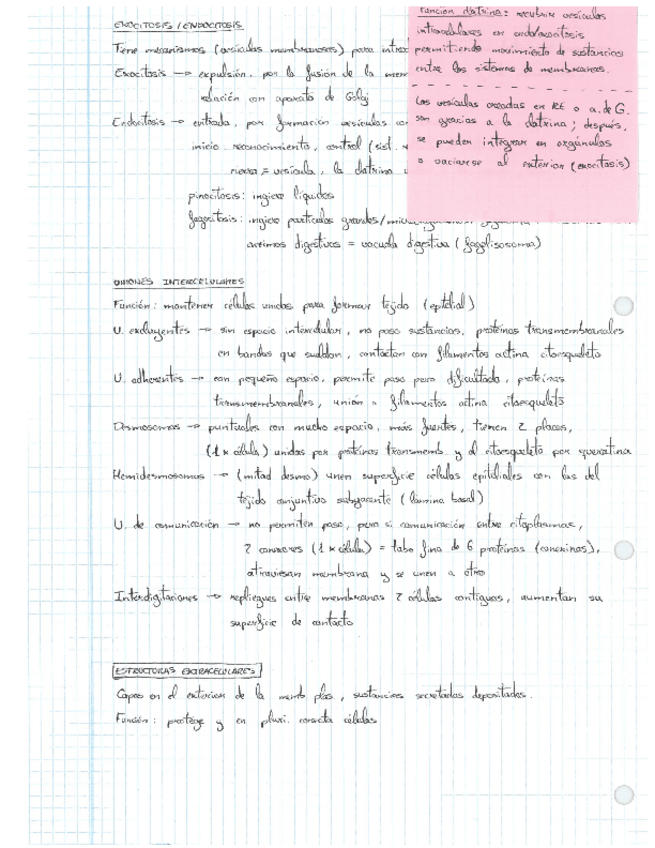 EXOCITOSIS / ENDOCITOSIS
Tiene mecanismos (vesículas membranosas) para introd
Exocitosis → expulsión, por la fusión de la mem
relación con aparato de Golgi
Endocitosis → entrada, por formación vesículas co
inicio reconocimiento, control (sist.
nerva = vesícula, la clatrina
pinocitosis: ingiere líquidos
fagocitosis: ingiere partículas grandes/
activos digestivos = vacuola digestiva (fagolisosoma)
Función clatrina: recubrir vesículas
intracelulares en endo/exocitosis
permitiendo movimiento de sustancias
entre los sistemas de membranas.
Las vesículas creadas en RE o a. de G.
son gracias a la clatrina; después,
se pueden integrar en orgánulos
o vaciarse al exterior (exocitosis)
UNIONES INTERCELULARES
Función: mantener células unidas para formar tejido (epitelial)
U. excluyentes → sin espacio intercelular, no paso sustancias, proteínas transmembranales
en bandas que sueldan, contactan con filamentos actina citoesqueleto
U. adherentes → con pequeño espacio, permite paso pero dificultado, proteínas
transmembranales, unión a filamentos actina citoesqueleto
Desmosomas → puntuales con mucho espacio, más fuertes, tienen 2 placas,
(1 x célula) unidas por proteínas transmemb. y al citoesqueleto por queratina
Hemidesmosomas → (mitad desmo) unen superficie células epiteliales con las del
tejido conjuntivo subyacente (lámina basal)
U. de comunicación → no permiten paso, pero sí comunicación entre citoplasmas,
2 conexones (1 x célula) = tubo fino de 6 proteínas (conexinas),
atraviesan membrana y se unen a otro
Interdigitaciones → repliegues entre membranas 2 células contiguas, aumentan su
superficie de contacto
ESTRUCTURAS EXTRACELULARES
Capas en el exterior de la memb plas, sustancias secretadas depositadas.
Función: protege y en pluri. conecta células